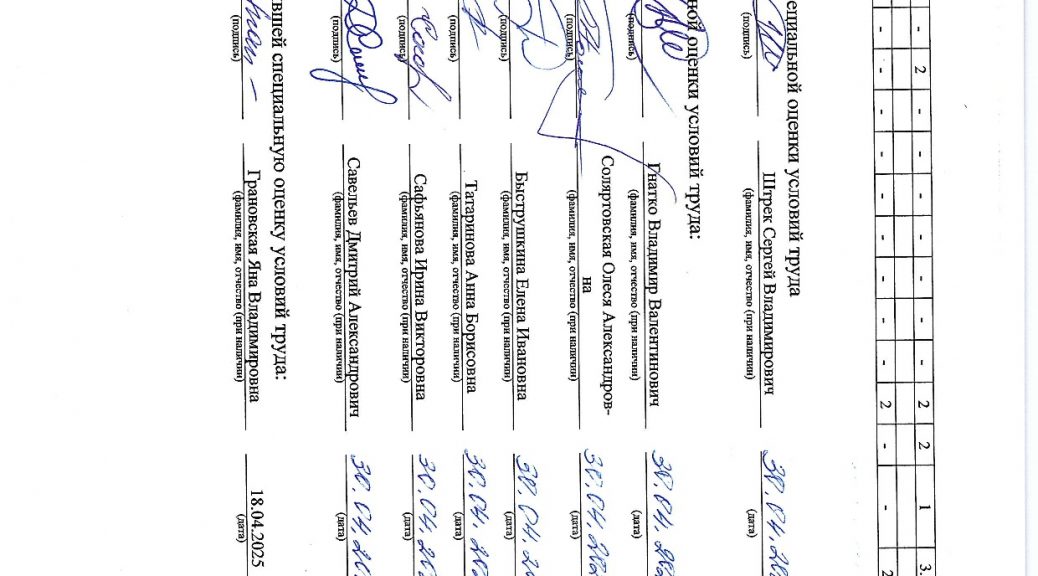 - 2 - - - - - - - 2 2 1 3.
- - - - - - - - - 2 - - 2
ециальной оценки условий труда
Штрек Сергей Владимирович 30.04.20
(подпись) (фамилия, имя, отчество (при наличии) (дата)
ной оценки условий труда:
Гнатко Владимир Валентинович 30.04.20
(подпись) (фамилия, имя, отчество (при наличии) (дата)
Соляртовская Олеся Александров-
на 30.04.20
(подпись) (фамилия, имя, отчество (при наличии) (дата)
Быструшкина Елена Ивановна 30.04.20
(подпись) (фамилия, имя, отчество (при наличии) (дата)
Татаринова Анна Борисовна 30.04.20
(подпись) (фамилия, имя, отчество (при наличии) (дата)
Сафьянова Ирина Викторовна 30.04.20
(подпись) (фамилия, имя, отчество (при наличии) (дата)
Савельев Дмитрий Александрович 30.04.20
(подпись) (фамилия, имя, отчество (при наличии) (дата)
вшей специальную оценку условий труда:
Грановская Яна Владимировна 18.04.2025
(подпись) (фамилия, имя, отчество (при наличии) (дата)